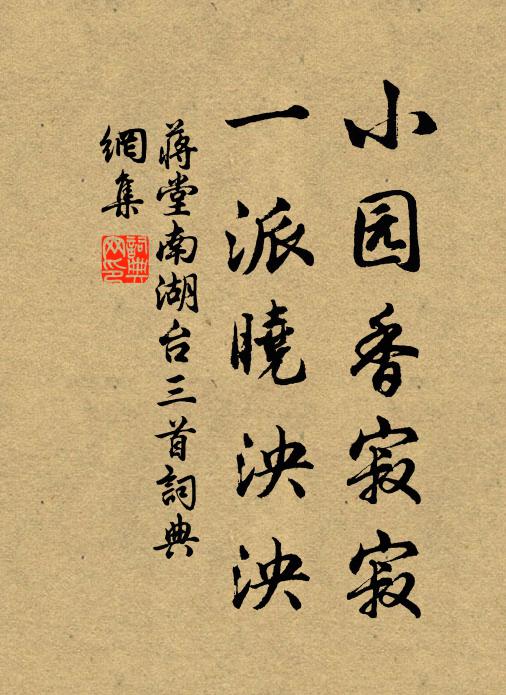 小园香寂寂
一派曉泱泱
蔣堂南湖台三首詞典
網集
詞典
网印